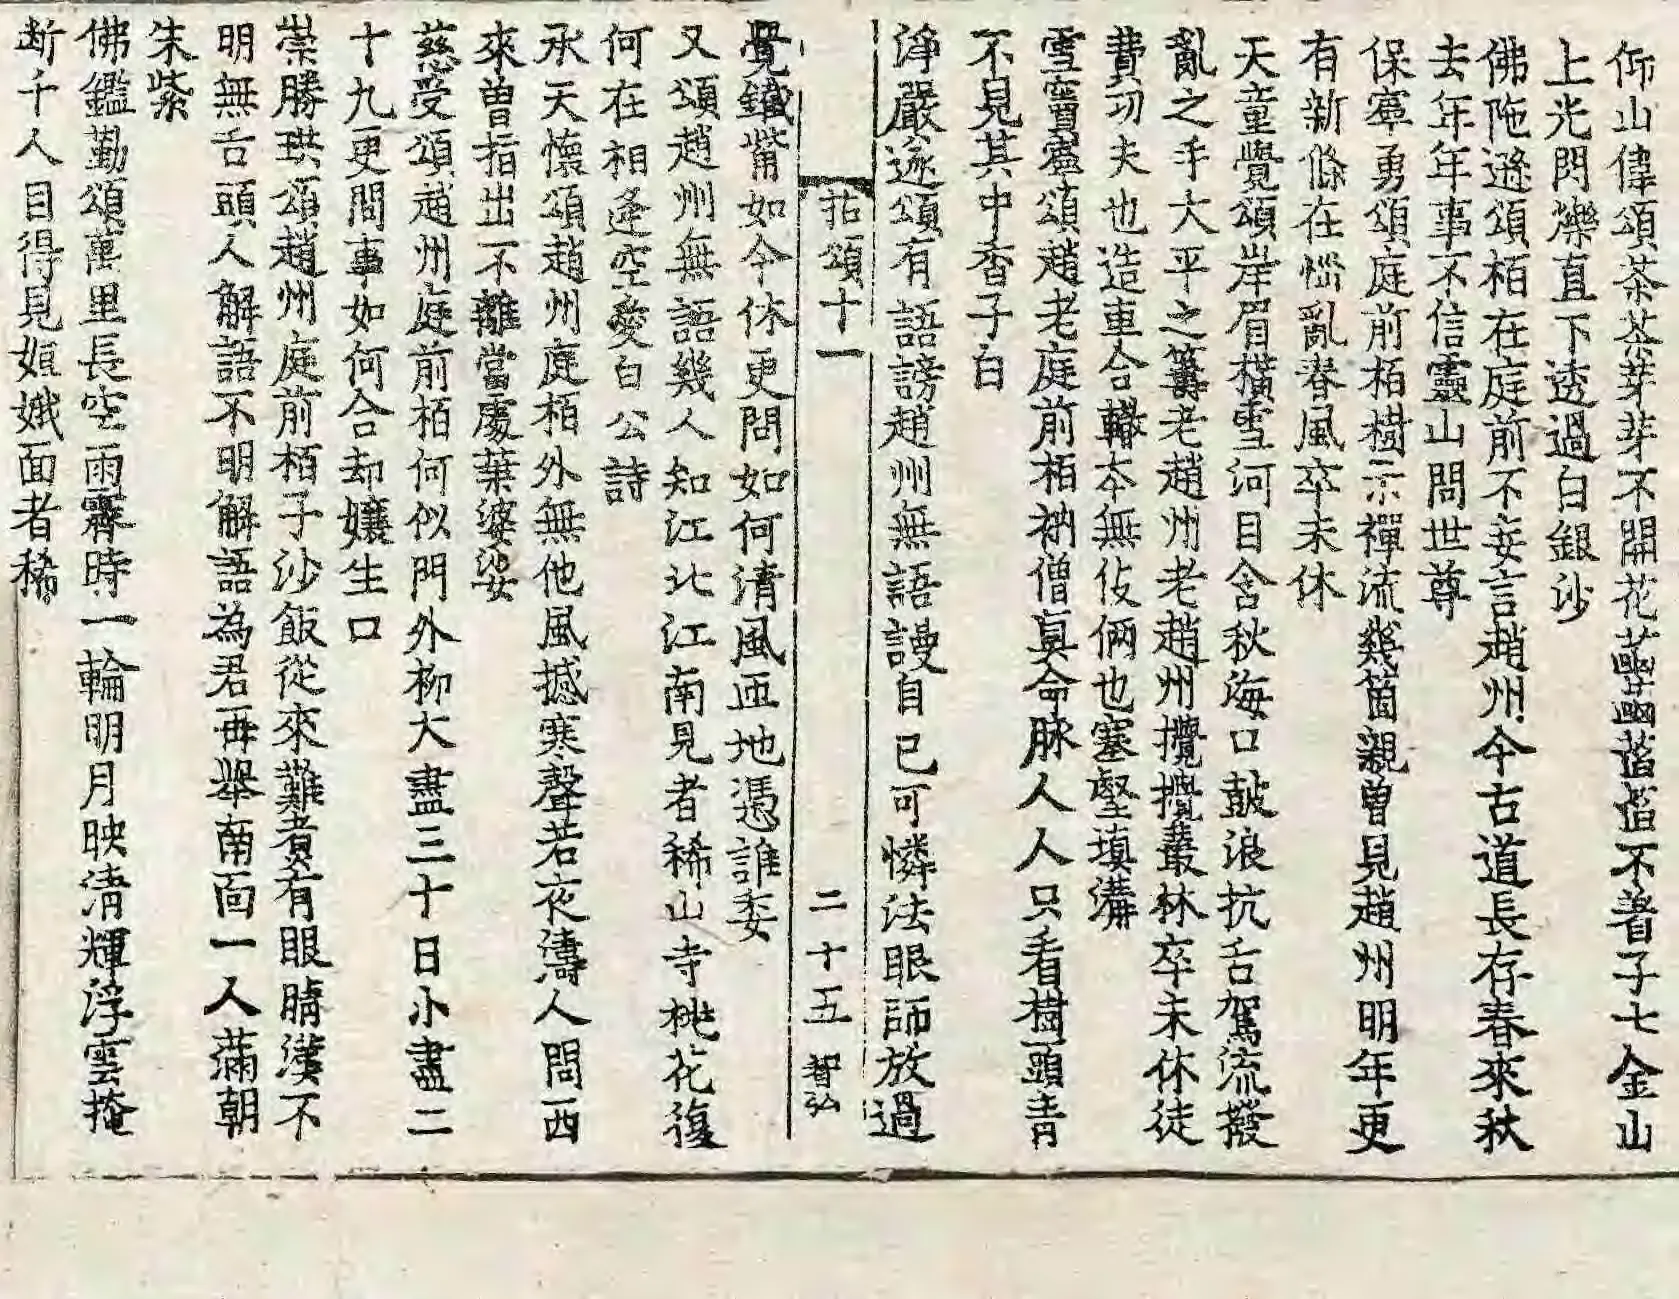 仰山偉頌茶茶芽芽不開花菡萏菡萏不著子七金山
上光閃爍直下透過白銀沙
佛陁遜頌栢在庭前不妄言趙州今古道長存春來秋
去年年事不信靈山問世尊
保寧勇頌庭前栢樹示禪流幾箇親曾見趙州明年更
有新條在惱亂春風卒未休
天童覺頌岸眉横雪河目含秋海口皷浪抗舌駕流撥
亂之手大平之籌老趙州老趙州攪攪叢林卒未休徒
費功夫也造車合轍本無伎倆也塞壑填溝
雪竇寧頌趙老庭前栢衲僧真命脉人人只看樹頭青
不見其中香子白
淨嚴遂頌有語謗趙州無語謾自已可憐法眼師放過
拈頌十一 二十五 智弘
覺鐵觜如今休更問如何清風匝地憑誰委
又頌趙州無語幾人知江北江南見者稀山寺桃花復
何在相逢空愛白公詩
承天懷頌趙州庭栢外無他風撼寒聲若夜濤人問西
來曾指出不離當處葉婆娑
慈受頌趙州庭前栢何似門外柳大盡三十日小盡二
十九更問事如何合却孃生口
崇勝珙頌趙州庭前栢子沙飯從來難煑有眼睛漢不
明無舌頭人解語不明解語為君再舉南面一人滿朝
朱紫
佛鑑勤頌萬里長空雨霽時一輪明月映清輝浮雲掩
断千人目得見姮娥面者稀